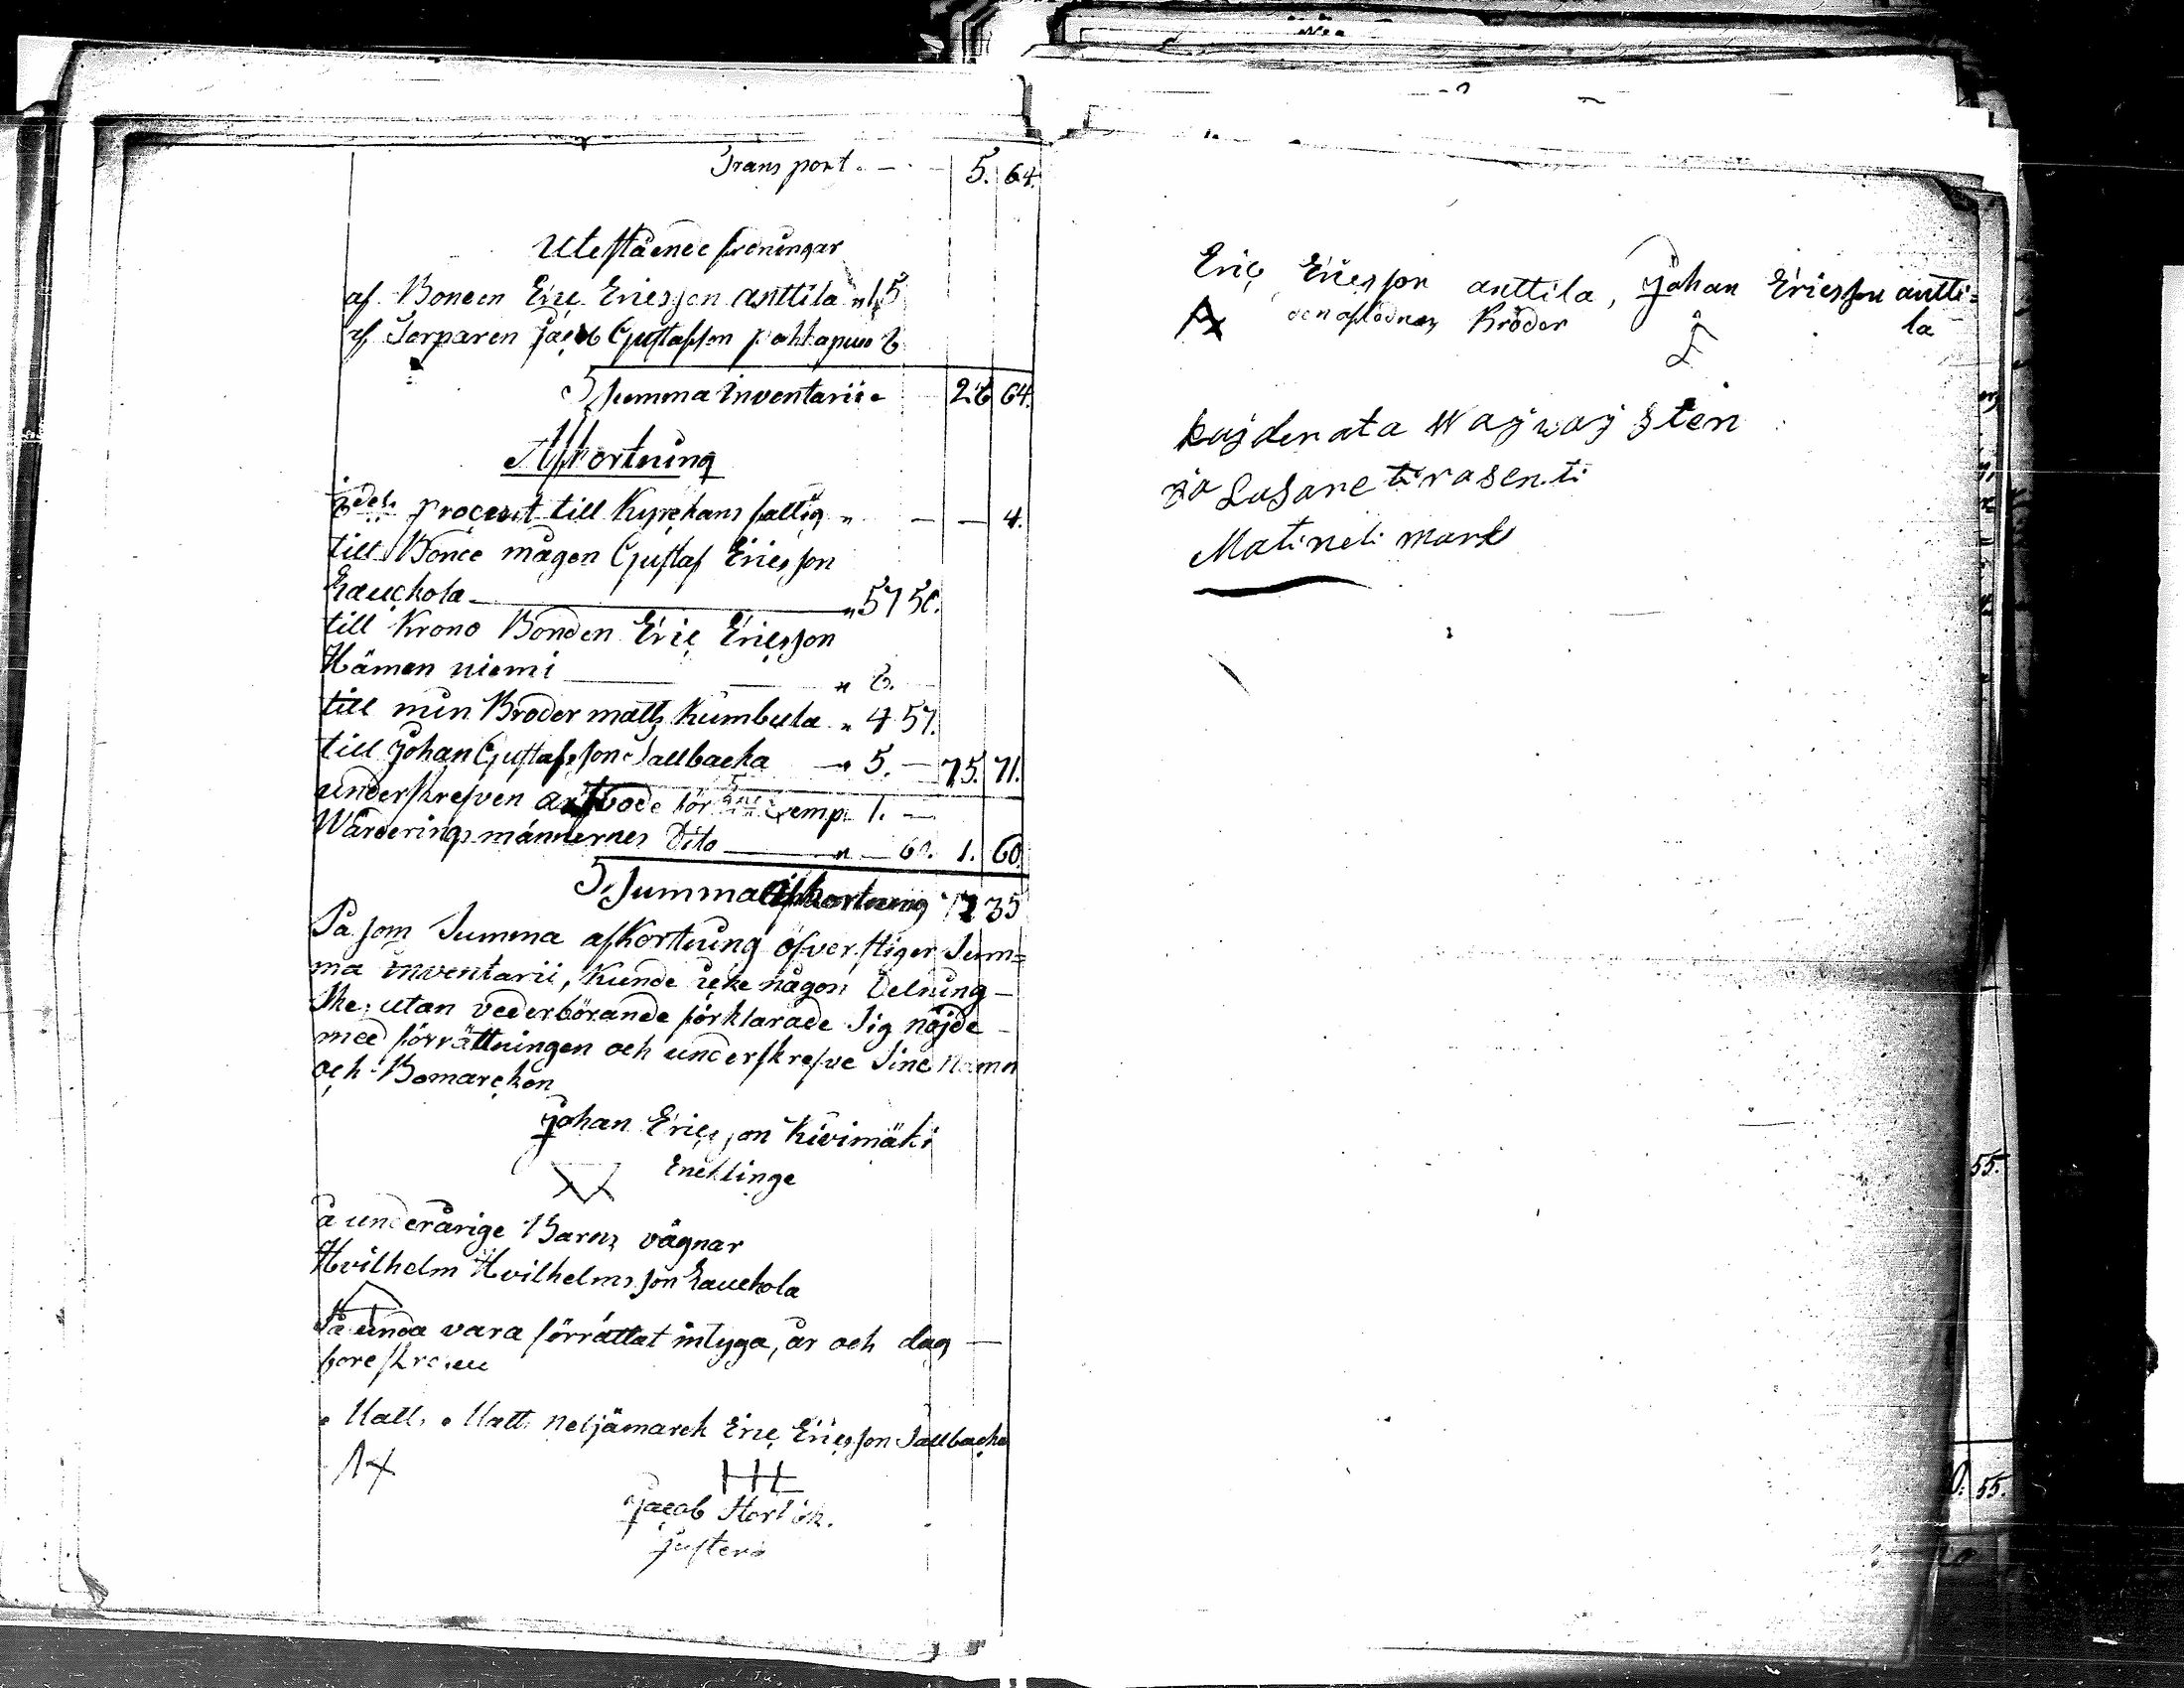 Transport. — 5. 64.
Utestående fordringar
af Bonden Eric Ericsson Anttila " 15
af Torparen Jacob Gustafsson pahkapuro 6
Summa Inventarii 26 64.
Afkortning
procent till Kyrckans fattig " — — 4.
till Bonde mågen Gustaf Ericsson
Lauchola — " 57 50.
till Krono Bonden Eric Ericsson
Hämen niemi — " 6. —
till min Broder matts Kumbula " 4 57.
till Johan Gustafsson Sallbacka — 5. — 75. 71.
underskrefven arfvode för Exemp. 1. —
Wärderingsmännernes Dito — " — 60. 1. 60.
Summa afkortning 77 35
Då som Summa afkortning öfverstiger Sum=
ma Inventarii, Kunde icke någon Delning —
Ske, utan vederbörande förklarade Sig nöjde —
med förrättningen och underskrefve Sine Namn
och Bomarcken
Johan Ericsson Kivimäki
Encklinge
å underårige Barns vägnar
Hvilhelm Hvilhelmsson Lauchola
Så unda vara förrättat intyga, år och dag —
föreskrefven
Matts Matts neljämarck Eric Ericsson Sallbacka
Jacob
Justerö
Eric Ericsson anttila, Johan Ericsson antti=
den aflednas Bröder la
kajdenata Wajwajsten
ja Lasare tirasenti
Matineli mark
55.
55.